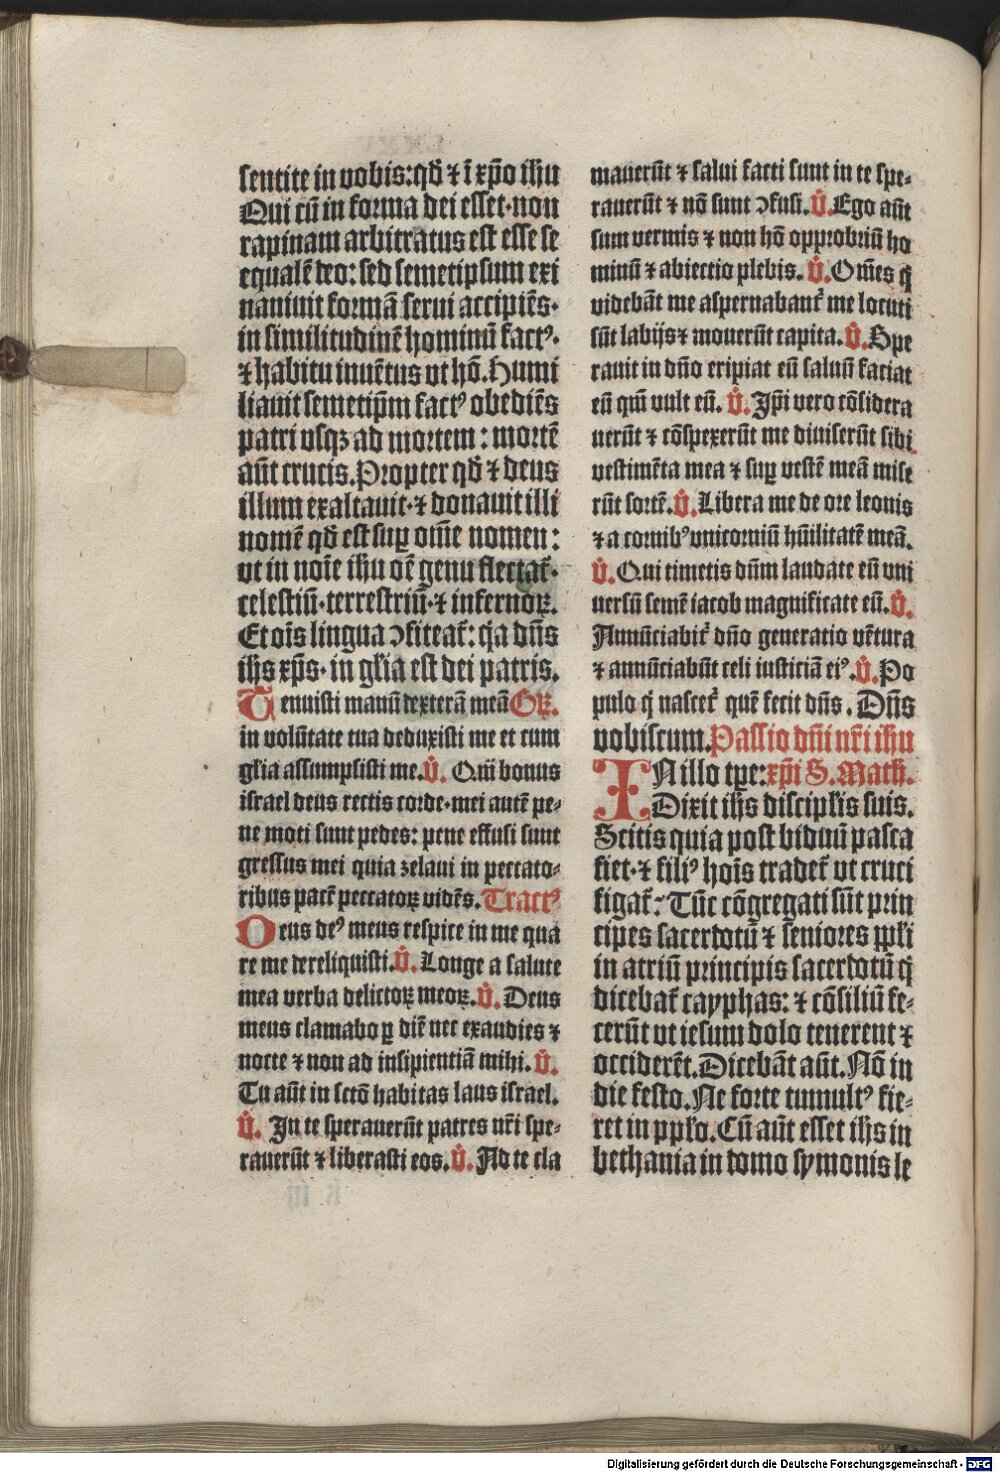 sentite in vobis: qđ ⁊ ī xp̄o ihū
Qui cū in forma dei esset· non
rapinam arbitratus est esse se
equalē deo: sed semetipsum exi
naniuit formā serui accipiēs·
in similitudinē hominū factꝰ·
⁊ habitu inuētus vt hō. Humi
liauit semetip̄m factꝰ obediēs
patri vsqꝫ ad mortem: mortē
aūt crucis. Propter qđ ⁊ deus
illum exaltauit·⁊ donauit illi
nomē qđ est suꝑ om̄e nomen:
vt in noīe ihū oē genu flectat᷑·
celestiū· terrestriū·⁊ infernoꝝ.
Et oīs lingua ꝯfiteat᷑: q̇a dn̄s
ihs xp̄s· in gl̄ia est dei patris.
Tenuisti manū dexterā meā Gꝝ.
in volūtate tua deduxisti me et cum
gl̄ia assumpsisti me. V̊. Qm̄ bonus
israel deus rectis corde· mei autē pe-
ne moti sunt pedes: pene effusi sunt
gressus mei quia zelaui in peccato-
ribus pacē peccatoꝝ vidēs. Tractꝰ
Deus deꝰ meus respice in me qua
re me dereliquisti. V̊. Longe a salute
mea verba delictoꝝ meoꝝ. V̊. Deus
meus clamabo ꝑ diē nec exaudies ⁊
nocte ⁊ non ad insipientiā mihi. V̊.
Tu aūt in sctō habitas laus israel.
V̊. In te sperauerūt patres nr̄i spe-
rauerūt ⁊ liberasti eos. V̊. Ad te cla
mauerūt ⁊ salui facti sunt in te spe-
rauerūt ⁊ nō sunt ꝯfusi. V̊. Ego aūt
sum vermis ⁊ non hō opprobriū ho
minū ⁊ abiectio plebis. V̊. Om̄es q̇
videbāt me aspernabant᷑ me locuti
sūt labijs ⁊ mouerūt capita. V̊. Spe
rauit in dn̄o eripiat eū saluū faciat
eū qm̄ vult eū. V̊. Ip̄i vero cōsidera
uerūt ⁊ cōspexerūt me diuiserūt sibi
vestimēta mea ⁊ suꝑ vestē meā mise
rūt sortē. V̊. Libera me de ore leonis
⁊ a cornibꝰ vnicorniū hūilitatē meā.
V̊. Qui timetis dn̄m laudate eū vni
uersū semē iacob magnificate eū. V̊.
Annūciabit᷑ dn̄o generatio vētura
⁊ annūciabūt celi iusticiā eiꝰ. V̊. Po
pulo q̇ nascet᷑ quē fecit dn̄s. Dn̄s
vobiscum. Passio dn̄i nr̄i ihū
IN illo tp̄e: xp̄i S. Math.
Dixit ihs discipl̄is suis.
Scitis quia post biduū pasca
fiet·⁊ filiꝰ hoīs tradet᷑ vt cruci
figat᷑· Tūc cōgregati sūt prin
cipes sacerdotū ⁊ seniores ppl̄i
in atriū principis sacerdotū q̇
dicebat᷑ cayphas: ⁊ cōsiliū fe-
cerūt vt iesum dolo tenerent ⁊
occiderēt. Dicebāt aūt. Nō in
die festo. Ne forte tumultꝰ fie-
ret in ppl̄o. Cū aūt esset ihs in
bethania in domo symonis le
Digitalisierung gefördert durch die Deutsche Forschungsgemeinschaft - DFG